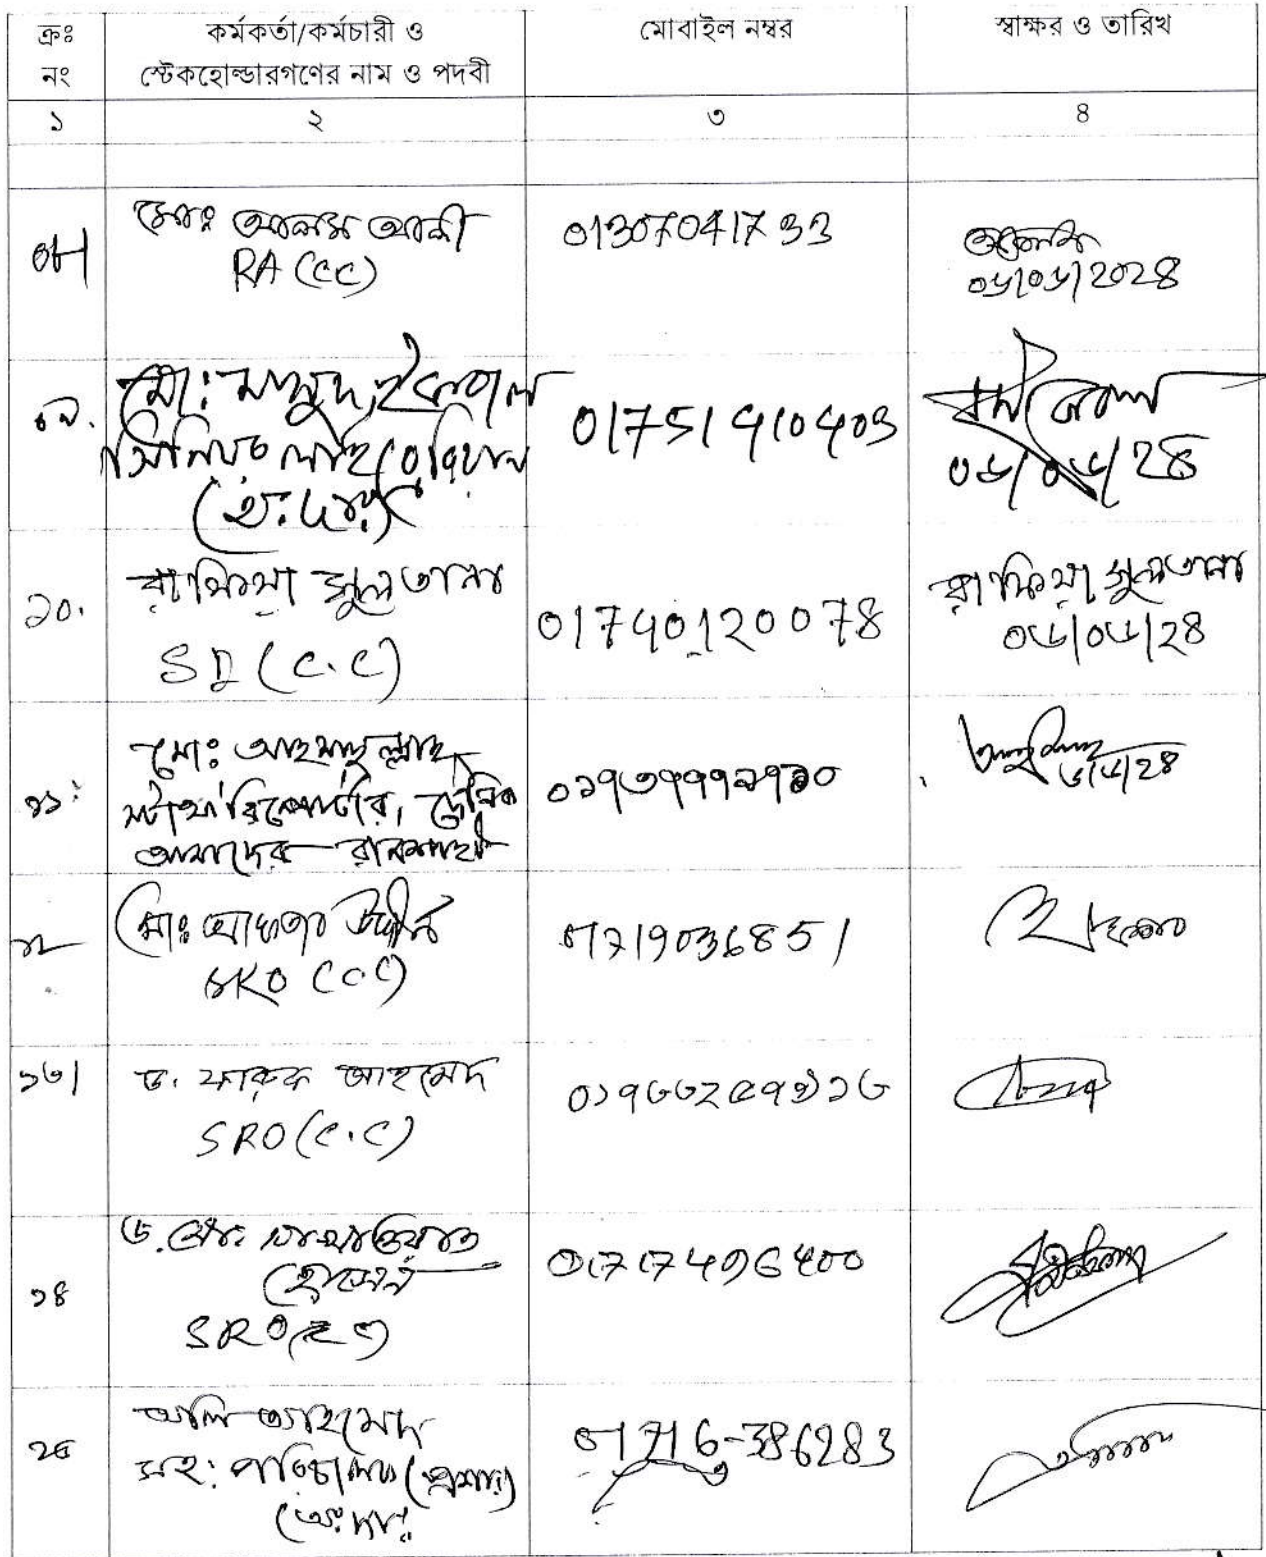 ক্রঃ নং
কর্মকর্তা/কর্মচারী ও স্টেকহোল্ডারগণের নাম ও পদবী
মোবাইল নম্বর
স্বাক্ষর ও তারিখ
১ ২ ৩ ৪
০৮|
মোঃ আলম আলী
RA (CC)
01307041733
০৬/০৬/2028
০৯.
মো: মাসুদ ইকবাল
সিনিয়র লাইব্রেরিয়ান
(অ:দা:)
01751910403
০৬/০৬/28
১০.
রাফিয়া সুলতানা
SD (C.C)
01740120078
রাফিয়া সুলতানা
০৬/০৬/28
১১.
মোঃ আহসানুল্লাহ
স্টাফ রিপোর্টার, দৈনিক
আমাদের রাজশাহী
৬/৬/28
১২
মোঃ
উদ্দীন
SRO (CC)
01719036851
১৩|
ড. ফারুক আহমেদ
SRO (C.C)
১৪
ড. মোঃ সাখাওয়াত
হোসেন
SRO (CC)
01717496400
১৫
আলি আহমেদ
সহ: পরিচালক (প্রশাঃ)
(অ:দা:)
01716-386283